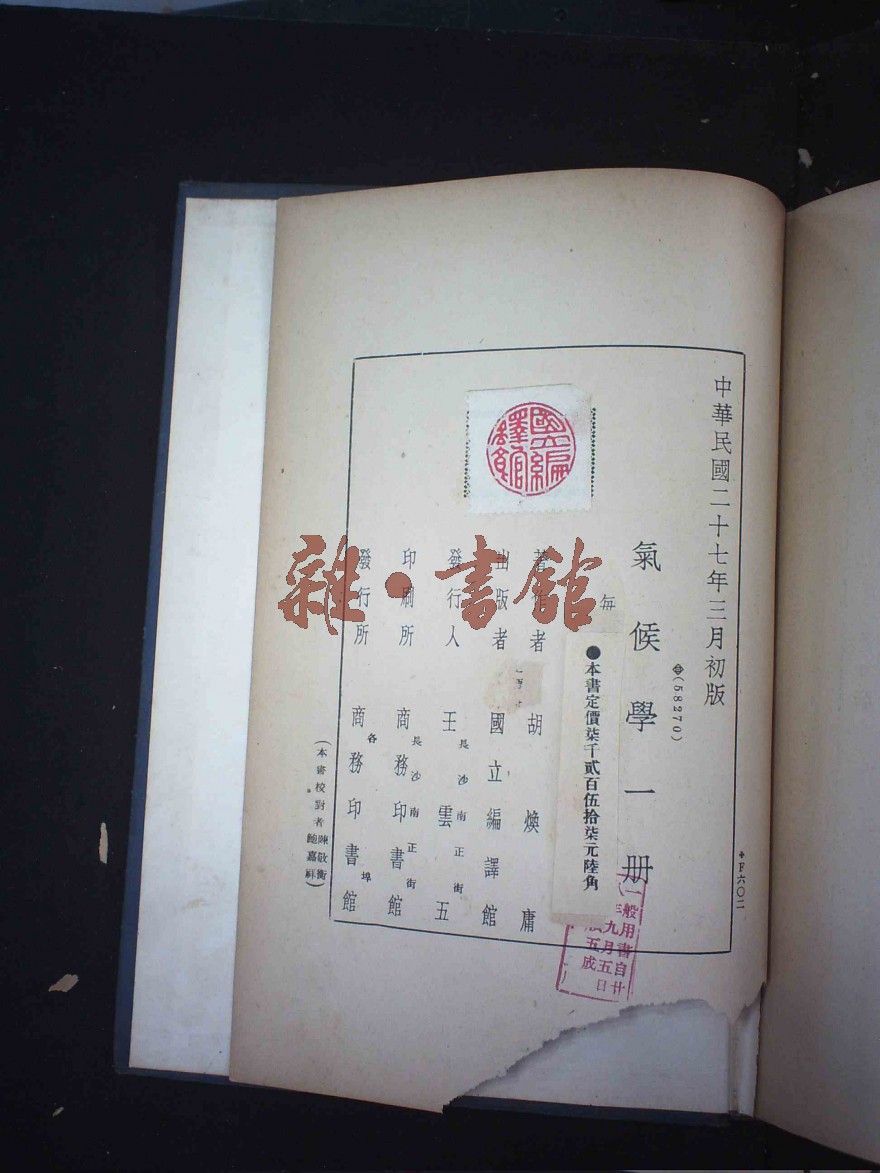 中華民國二十七年三月初版
(58270)
F六〇二
氣候學一册
每
●本書定價柒千貳百伍拾柒元陸角
著作者 胡煥庸
出版者 國立編譯館
發行人 王雲五
長沙南正街
印刷所 商務印書館
長沙南正街
發行所 商務印書館
各埠
(本書校對者陳敬衡鮑嘉祥)
國立編譯館
一般用書自廿
九月五日
五成
雜·書館